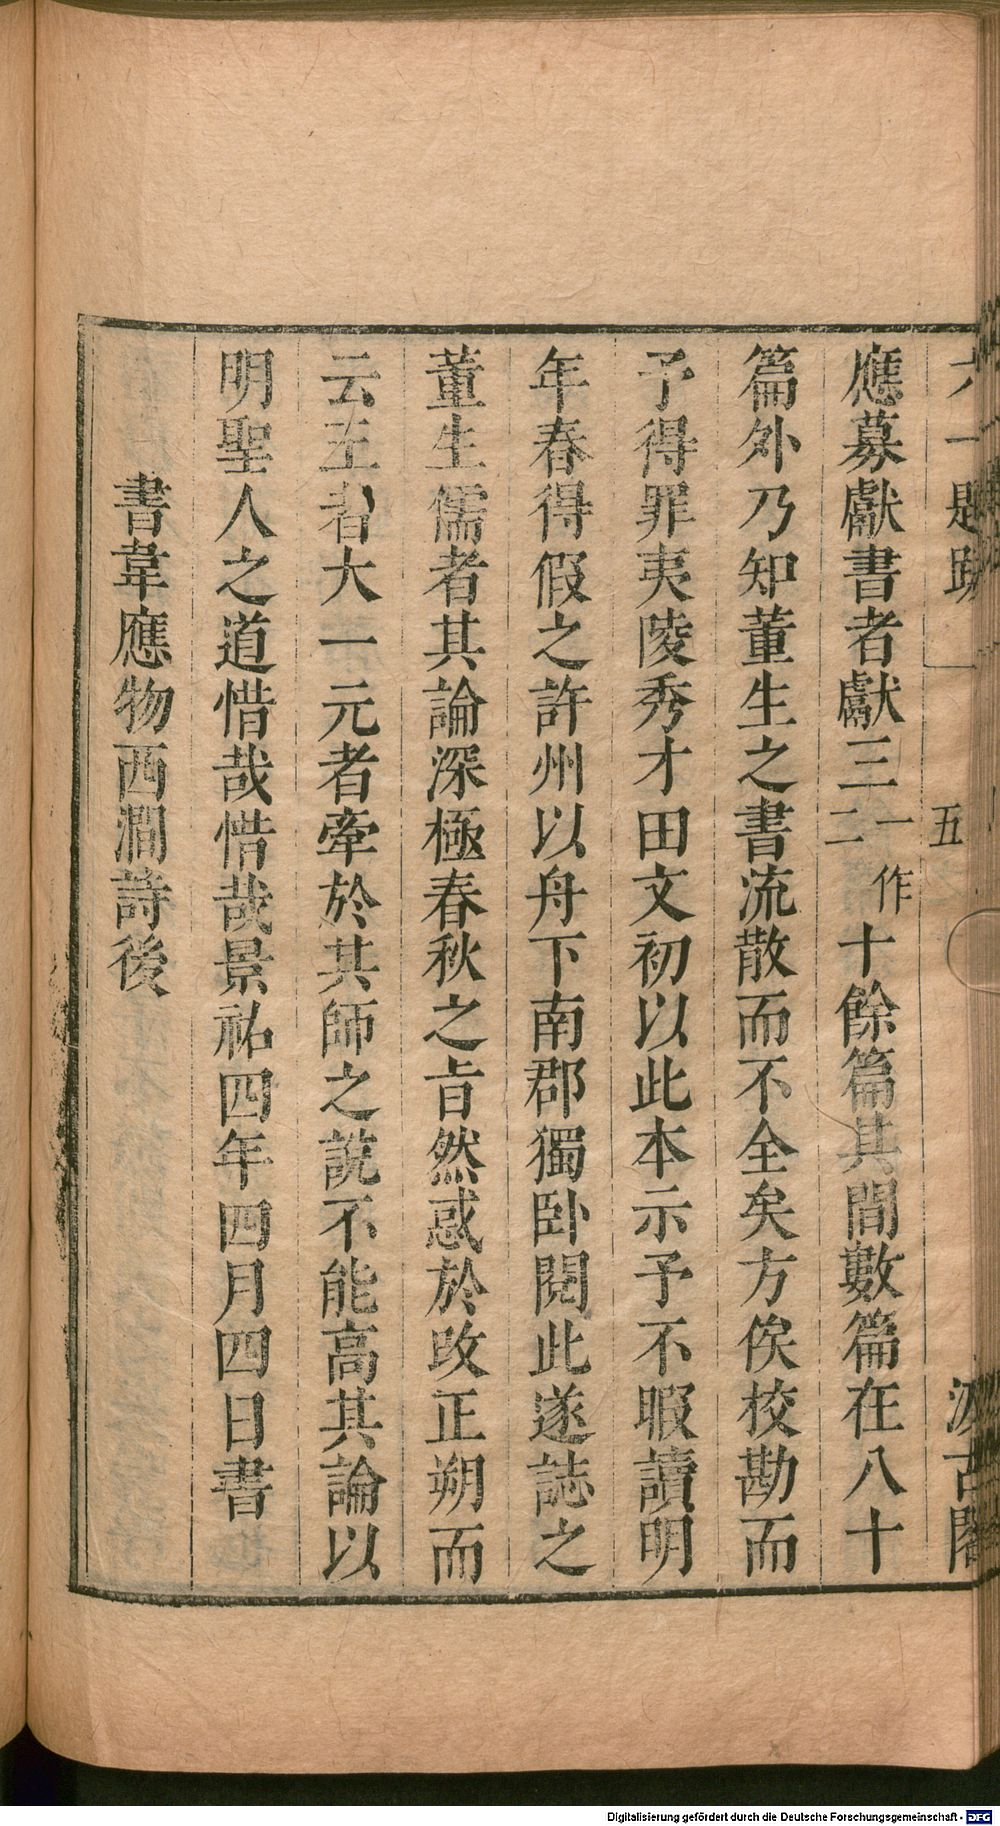 六一題跋
五
汲古閣
應募獻書者獻三一作二十餘篇其間數篇在八十
篇外乃知董生之書流散而不全矣方俟校勘而
予得罪夷陵秀才田文初以此本示予不暇讀明
年春得假之許州以舟下南郡獨卧閱此遂誌之
董生儒者其論深極春秋之旨然惑於改正朔而
云王者大一元者牽於其師之說不能高其論以
明聖人之道惜哉惜哉景祐四年四月四日書
書韋應物西澗詩後
Digitalisierung gefördert durch die Deutsche Forschungsgemeinschaft - DFG